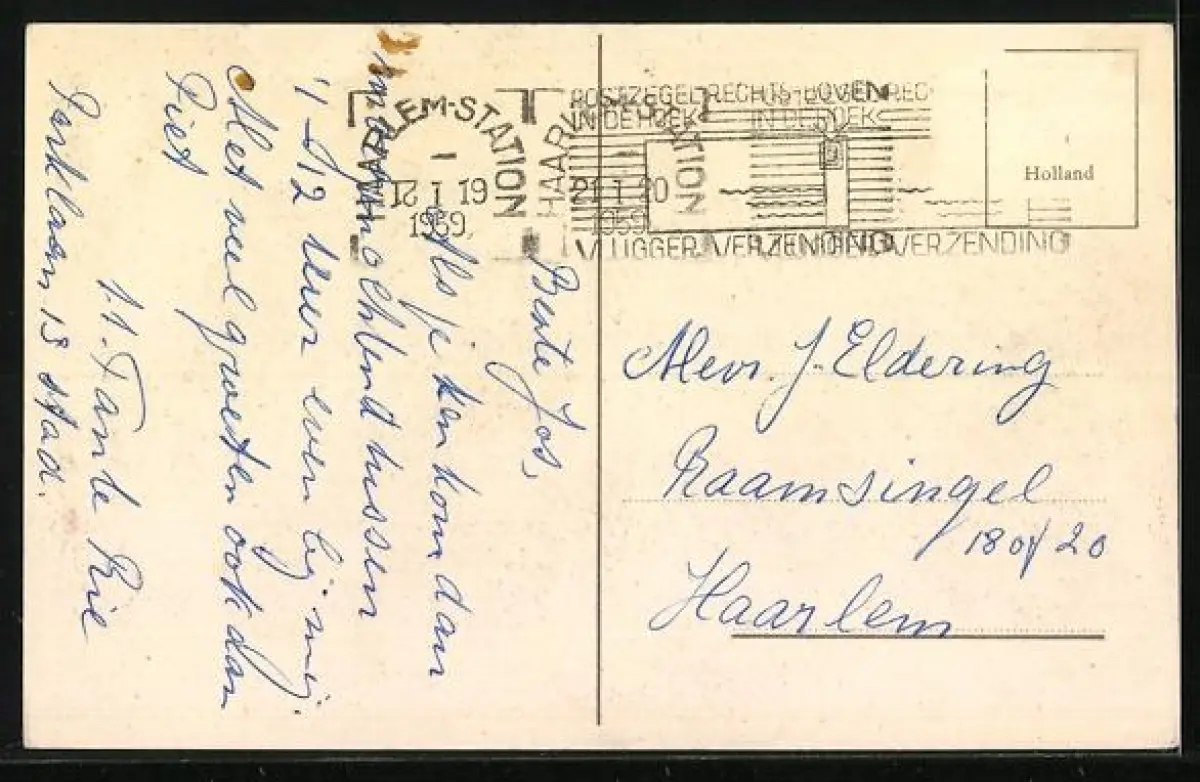 Beste Jos,
Als je ken kom dan
morgenochtend tussen
'1-½12 uur even bij mij.
Met veel groeten ook dan
Piet
Tante Rie
13 stad.
HAARLEM-STATION
12 I 19
1959
HAARLEM-STATION
21 I 20
1959
POSTZEGEL RECHTS-BOVEN
IN DE HOEK
IN DE HOEK
VLUGGER VERZENDING
VERZENDING
Holland
Mevr. J. Eldering
Raamsingel
18 of 20
Haarlem